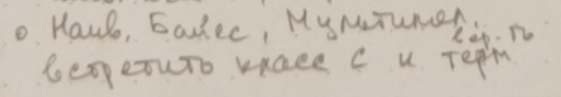 о Наив. Байес, Мультином.
вер. ть
встретить класс c и терм